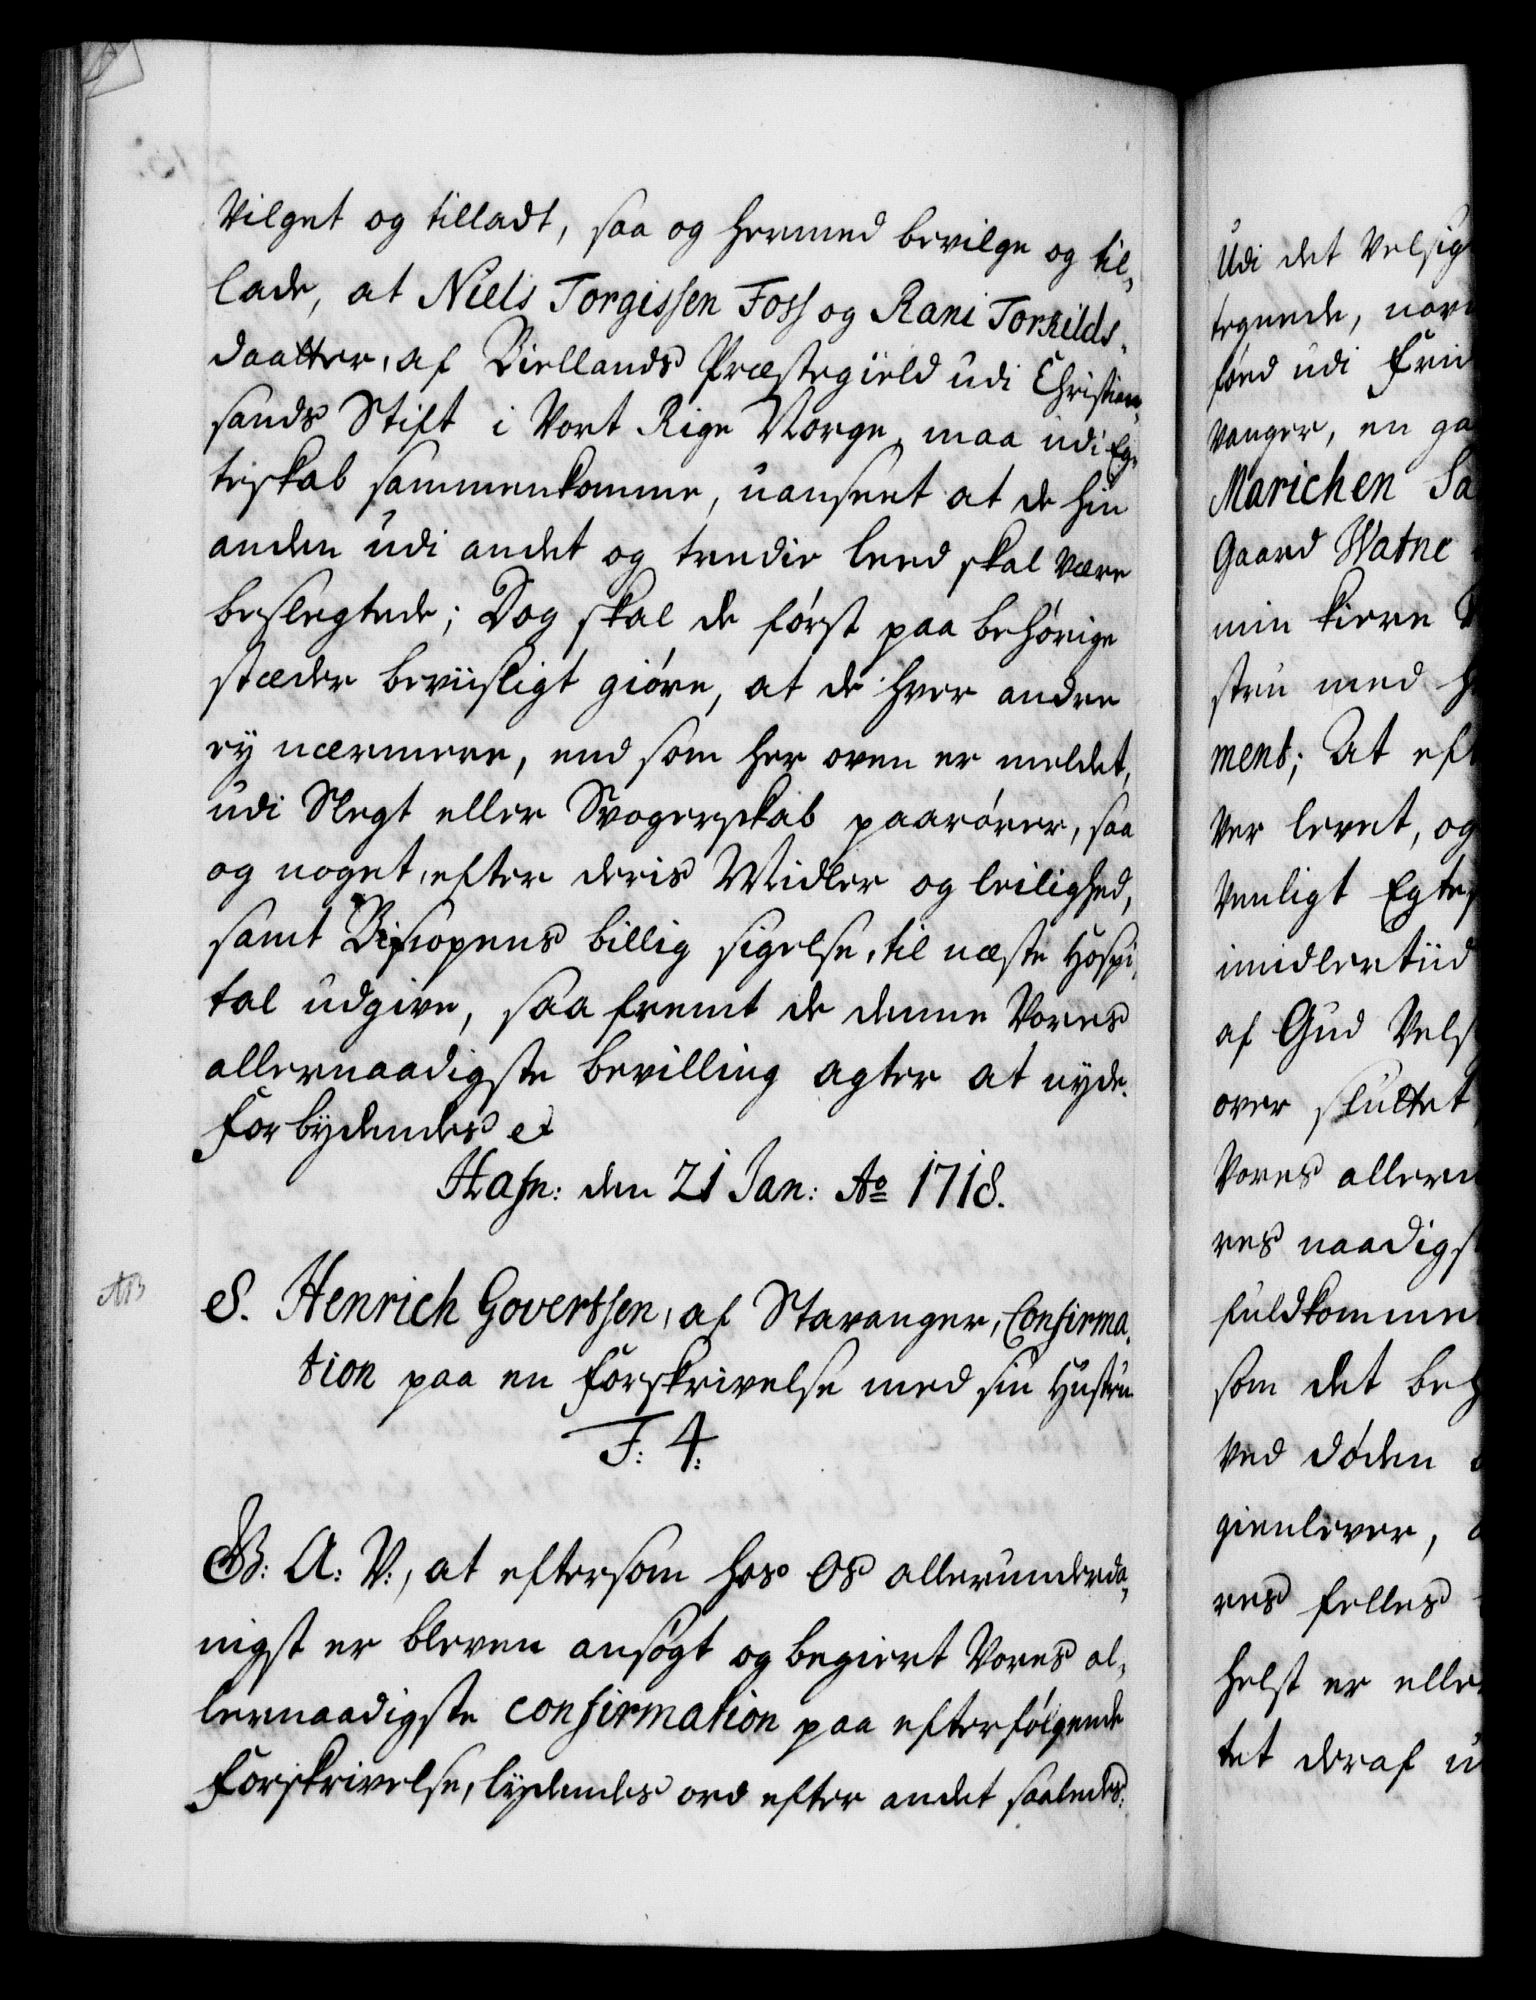 vilget og tilladt, saa og hermed bevilge og til,
lade, at Niels Torgissen Foss og Rani Torkilds,
daatter, af Biellands Præstegield udi Christian,
sands Stift i Vort Rige Norge, maa udi Eg,
teskab sammenkomme, uanseet at de hin
anden udi andet og tredie leed skal være
beslegtede; Dog skal de først paa behørige
stæder beviisligt giøre, at de hver andre
ey nærmere, end som her oven er meldet,
udi Slegt eller Svogerskab paarører, saa
og noget, efter deris Midler og leilighed,
samt Bispopens billig sigelse, til næste Hospi,
tal udgive, saa fremt de denne Vores
allernaadigste bevilling agter at nyde.
Forbydendes etc
Hafn: den 21 Jan: Ao 1718.
S. Henrich Govertssen, af Stavanger, Confirma,
tion paa en Forskrivelse med sin Hustru
F: 4:
G: A: V:, at eftersom hos Os allerunderda,
nigst er bleven ansøgt og begiert Vores al,
lernaadigste confirmation paa efterfølgende
Forskrivelse, lydendes ord efter andet saaledes:
Udi det Velsig
tegnede,
føed udi Frid
vanger, en ga
Marichen Sa
Gaard Watne
min kiere
stru med
ment; At eft
ver levet, og
venligt Egtes
imidlertiid
af Gud Vels
over sluttet
Vores allern
res naadigs
fuldkomme
som det beh
ved døden
gienlever,
res felles
helst er elle
tet deraf u